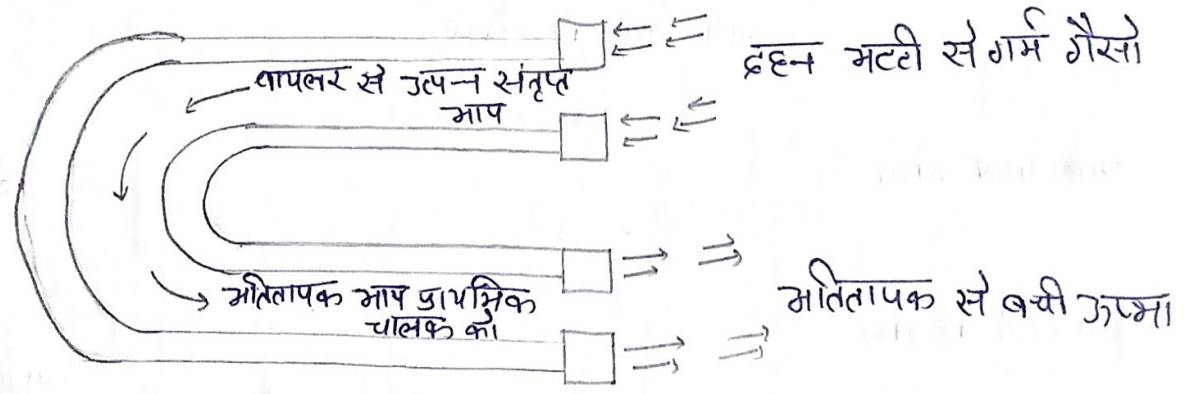 दहन भटटी से गर्म गैसो
वायलर से उत्पन्न संतृप्त
भाप
अतितापक भाप प्राथमिक
चालक को
अतितापक से बची ऊष्मा